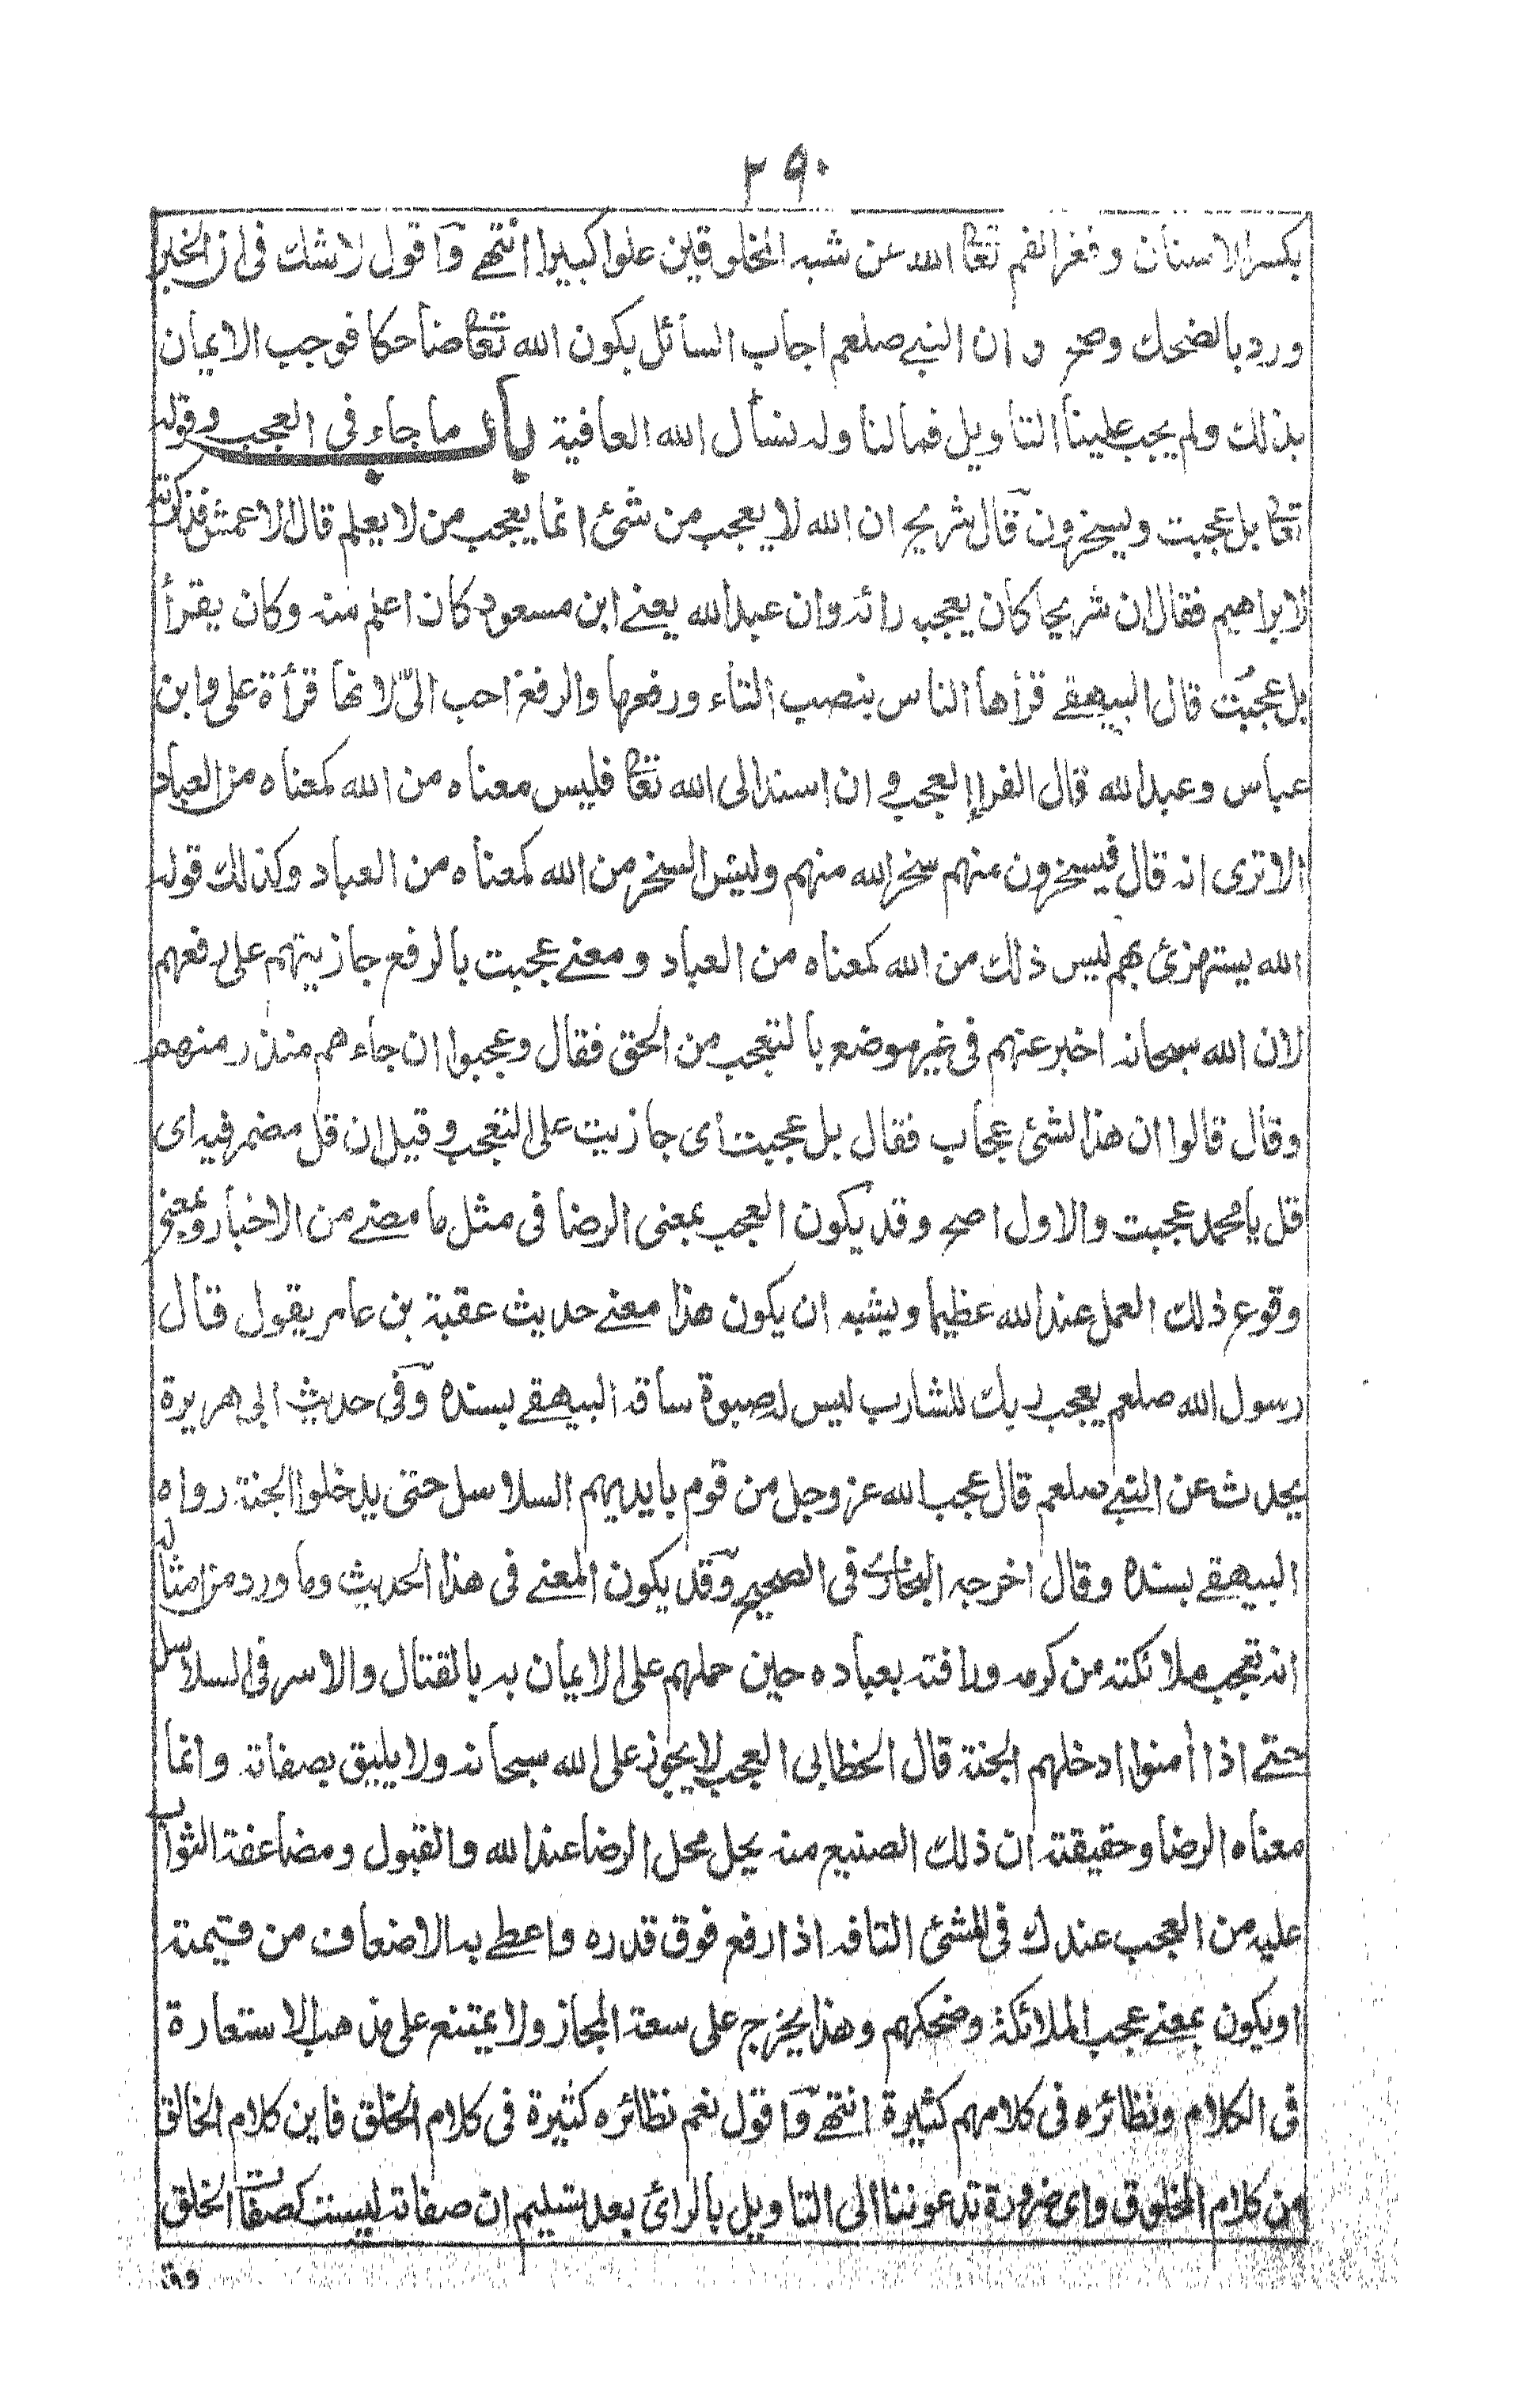 ٢٩٠
بكسر الاسنان وفغر الفم تعالى الله عن شبه المخلوقين علوا كبيرا انتهے وأقول لا شك فى ان الخبر
ورد بالضحك وصح وان النبے صلعم اجاب السائل بكون الله تعالى ضاحكا فوجب الايمان
بذلك ولم يجب علينا التاويل فمالنا وله نسأل الله العافية باب ما جاء فى العجب وقوله
تعالى بل عجبت ويسخرون قال شريح ان الله لا يعجب من شئ انما يعجب من لا يعلم قال الاعمش فذكرته
لابراهيم فقال ان شريحا كان يعجبه رائه وان عبد الله يعنے ابن مسعود كان اعلم منه وكان يقرأ
بل عجبت قال البيهقے قرأها الناس بنصب التاء ورفعها والرفع احب الىّ لانها قرأة على وابن
عباس وعبد الله قال الفراء العجب وان اسند الى الله تعالى فليس معناه من الله كمعناه من العباد
الا ترى انه قال فيسخرون منهم سخر الله منهم وليس السخر من الله كمعناه من العباد وكذلك قوله
الله يستهزئ بهم ليس ذلك من الله كمعناه من العباد ومعنے عجبت بالرفع جازيتهم على رفعهم
لان الله سبحانه اخبر عنهم فى غير موضع بالتعجب من الحق فقال وعجبوا ان جاءهم منذر منهم
وقال قالوا ان هذا لشئ عجاب فقال بل عجبت اى جازيت على التعجب وقيل ان قل مضمر فيه اى
قل يا محمد عجبت والاول اصح وقد يكون العجب بمعنى الرضا فى مثل ما مضے من الاخبار وبمعنے
وقوع ذلك العمل عند الله عظيما ويشبه ان يكون هذا معنے حديث عقبة بن عامر يقول قال
رسول الله صلعم يعجب ربك للشارب ليس له صبوة ساقه البيهقے بسنده وفى حديث ابى هريرة
يحدث عن النبے صلعم قال عجب الله عز وجل من قوم بايديهم السلاسل حتى يدخلوا الجنة رواه
البيهقے بسنده وقال اخرجه البخارى فى الصحيح وقد يكون المعنے فى هذا الحديث وما ورد من امثاله
انه تعجب ملائكته من كرمه ورافته بعباده حين حملهم على الايمان به بالقتال والاسر فى السلاسل
حتے اذا أمنوا ادخلهم الجنة قال الخطابى العجب لا يجوز على الله سبحانه ولا يليق بصفاته وانما
معناه الرضا وحقيقته ان ذلك الصنيع منه يحل محل الرضا عند الله والقبول ومضاعفة الثواب
عليه من العجب عندك فى الشئ التافه اذا رفع فوق قدره واعطے به الاضعاف من قيمته
او يكون بمعنے عجب الملائكة وضحكهم وهذا يخرج على سعة المجاز ولا يمتنع على مذهب الاستعارة
فى الكلام ونظائره فى كلامهم كثيرة انتهے وأقول نعم نظائره كثيرة فى كلام الخلق فاين كلام الخالق
من كلام المخلوق واى ضرورة تدعوننا الى التاويل بالرائ بعد تسليم ان صفاته ليست كصفات الخلق